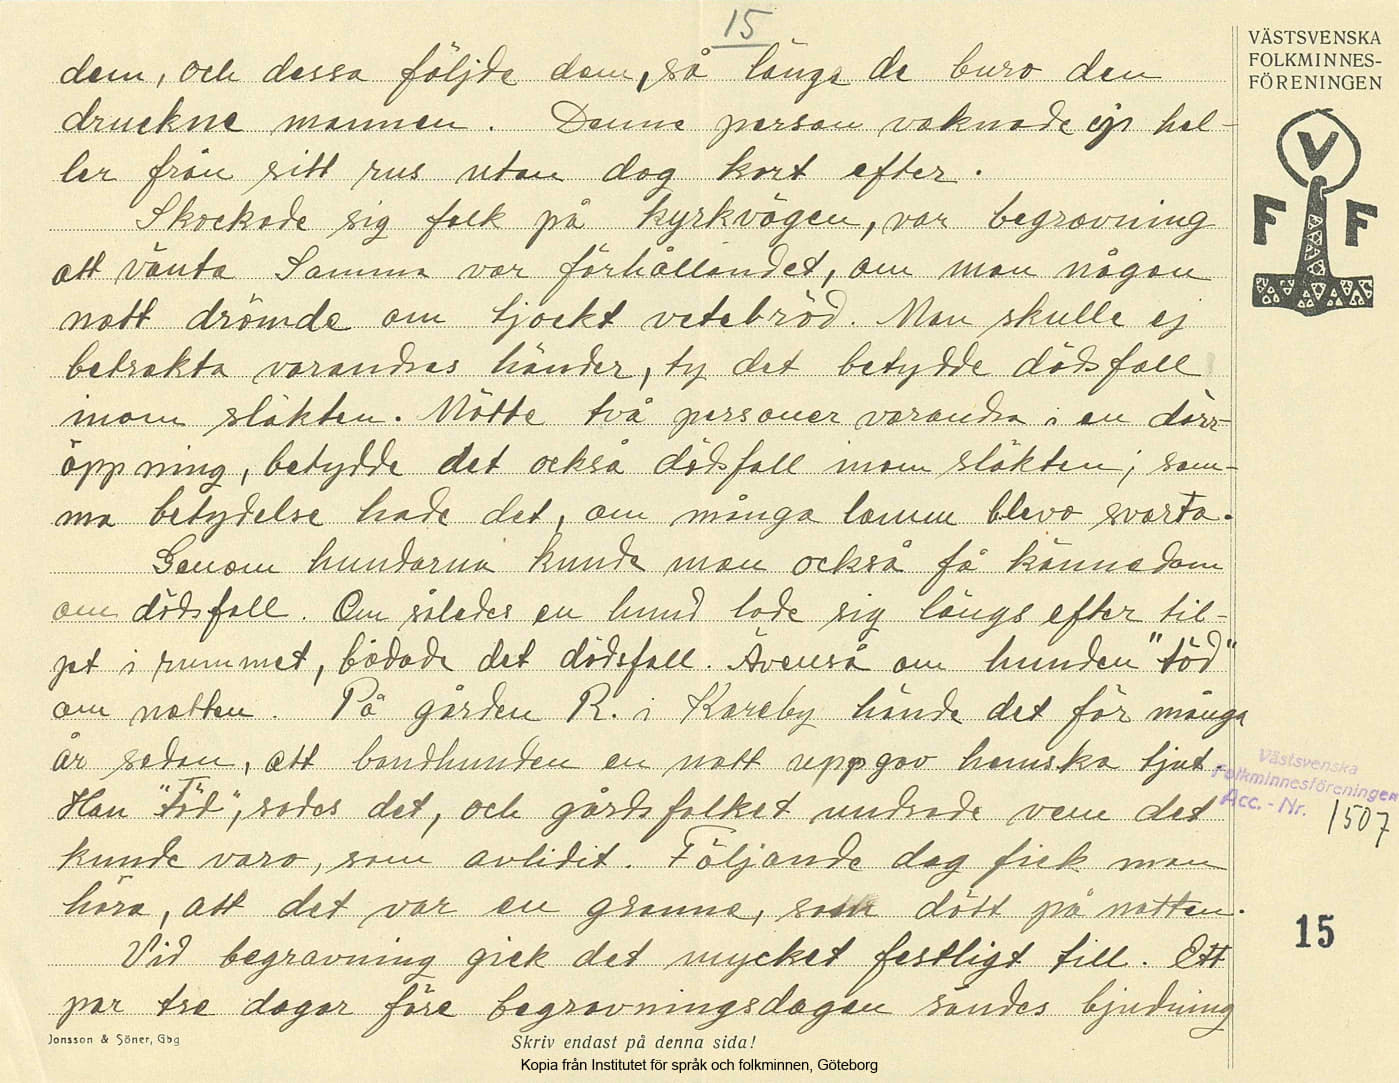 15
dem, och dessa följde dem, så länge de buro den
druckne mannen. Denne person vaknade ej hel-
ler från sitt rus utan dog kort efter.
Skockade sig folk på kyrkvägen, var begravning
att vänta Samma var förhållandet, om man någon
natt drömde om tjockt vetebröd. Man skulle ej
betrakta varandras händer, ty det betydde dödsfall
inom släkten. Mötte två personer varandra i en dörr-
öppning, betydde det också dödsfall inom släkten; sam-
ma betydelse hade det, om många lamm blevo svarta.
Genom hundarna kunde man också få kännedom
om dödsfall. Om således en hund lade sig längs efter til-
jet i rummet, bådade det dödsfall. Ävenså om hunden "töd"
om natten. På gården R. i Kareby hände det för många
år sedan, att bandhunden en natt uppgav hemska tjut.
Han "töd", sades det, och gårdsfolket undrade vem det
kunde vara, som avlidit. Följande dag fick man
höra, att det var en granne, som dött på natten.
Vid begravning gick det mycket festligt till. Ett
par tre dagar före begravningsdagen sändes bjudning
Jonsson & Söner, Gbg
Skriv endast på denna sida!
Kopia från Institutet för språk och folkminnen, Göteborg
VÄSTSVENSKA
FOLKMINNES-
FÖRENINGEN
V
F F
Västsvenska
Folkminnesföreningen
Acc. - Nr. 1507
15